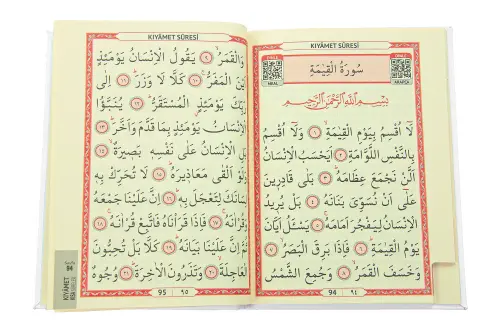 KIYÂMET SÛRESİ
سُورَةُ الْقِيٰمَةِ
MEAL
ARAPÇA
بِسْمِ اللّٰهِ الرَّحْمٰنِ الرَّحِيمِ
لَٓا اُقْسِمُ بِيَوْمِ الْقِيٰمَةِ ١ وَلَٓا اُقْسِمُ
بِالنَّفْسِ اللَّوَّامَةِ ٢ اَيَحْسَبُ الْاِنْسَانُ
اَلَّنْ نَجْمَعَ عِظَامَهُ ٣ بَلٰى قَادِرِينَ
عَلٰٓى اَنْ نُسَوِّيَ بَنَانَهُ ٤ بَلْ يُرِيدُ
الْاِنْسَانُ لِيَفْجُرَ اَمَامَهُ ٥ يَسْـَٔلُ اَيَّانَ
يَوْمُ الْقِيٰمَةِ ٦ فَاِذَا بَرِقَ الْبَصَرُ ٧
وَخَسَفَ الْقَمَرُ ٨ وَجُمِعَ الشَّمْسُ
94 ٩٤
KIYÂMET SÛRESİ
وَالْقَمَرُ ٩ يَقُولُ الْاِنْسَانُ يَوْمَئِذٍ
الْمَفَرُّ ١٠ كَلَّا لَا وَزَرَ ١١ اِلٰى
رَبِّكَ يَوْمَئِذٍ الْمُسْتَقَرُّ ١٢ يُنَبَّؤُا
الْاِنْسَانُ يَوْمَئِذٍ بِمَا قَدَّمَ وَاَخَّرَ ١٣
بَلِ الْاِنْسَانُ عَلٰى نَفْسِهِ بَصِيرَةٌ ١٤
وَلَوْ اَلْقٰى مَعَاذِيرَهُ ١٥ لَا تُحَرِّكْ بِهِ
لِسَانَكَ لِتَعْجَلَ بِهِ ١٦ اِنَّ عَلَيْنَا جَمْعَهُ
وَقُرْاٰنَهُ ١٧ فَاِذَا قَرَأْنَاهُ فَاتَّبِعْ قُرْاٰنَهُ ١٨
ثُمَّ اِنَّ عَلَيْنَا بَيَانَهُ ١٩ كَلَّا بَلْ تُحِبُّونَ
الْعَاجِلَةَ ٢٠ وَتَذَرُونَ الْاٰخِرَةَ ٢١ وُجُوهٌ
95 ٩٥
94
KIYÂMET